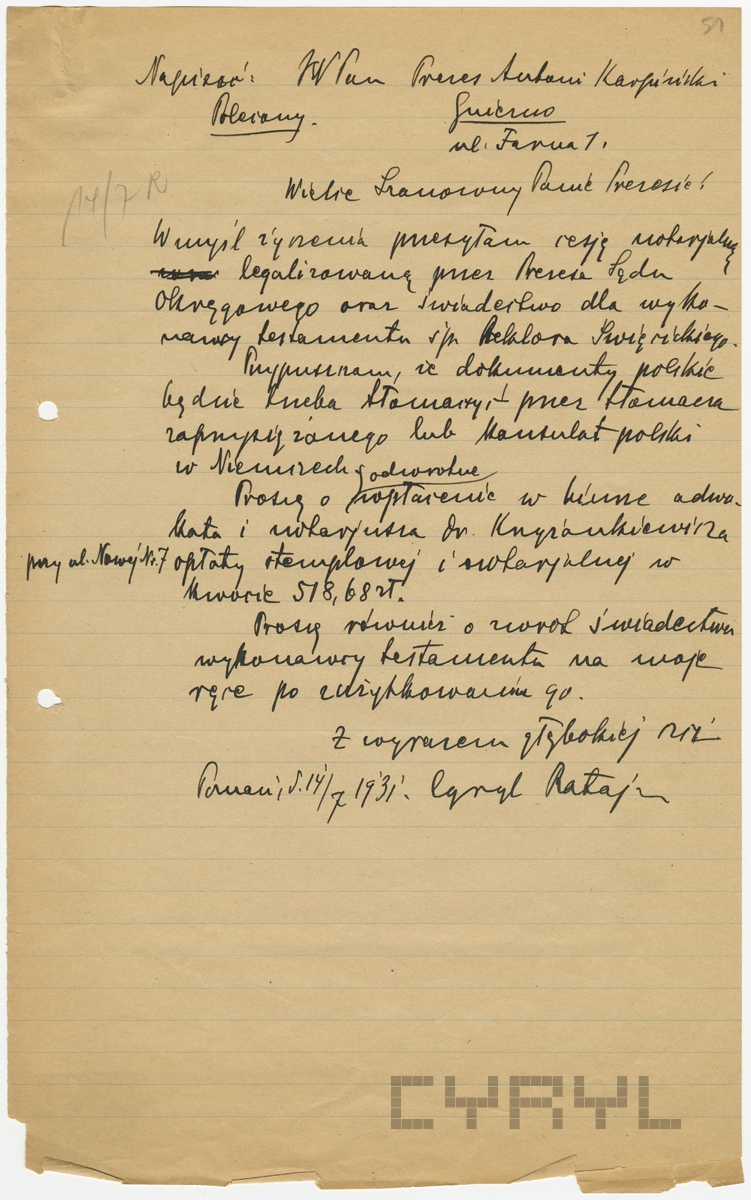 51
Napisać: WPan Prezes Antoni Karpiński
Polecony. Gniezno
ul. Farna 1.
14/7 R
Wielce Szanowny Panie Prezesie!
W myśl życzenia przesyłam cesję notarjalną
legalizowaną przez Prezesa Sądu
Okręgowego oraz świadectwo dla wyko-
nawcy testamentu śp. Rektora Święcickiego.
Przypuszczam, że dokumenty polskie
będzie trzeba tłomaczyć przez tłomacza
zaprzysiężonego lub konsulat polski
w Niemczech.
odwrotne
Proszę o wpłacenie w biurze adwo-
kata i notarjusza dr. Knyżankiewicza
przy ul. Nowej Nr. 7 opłaty stemplowej i notarjalnej w
kwocie 518,68 zł.
Proszę również o zwrot świadectwa
wykonawcy testamentu na moje
ręce po zużytkowaniu go.
Z wyrazem głębokiej czci
Poznań, d. 14/7 1931. Cyryl Ratajski
CYRYL